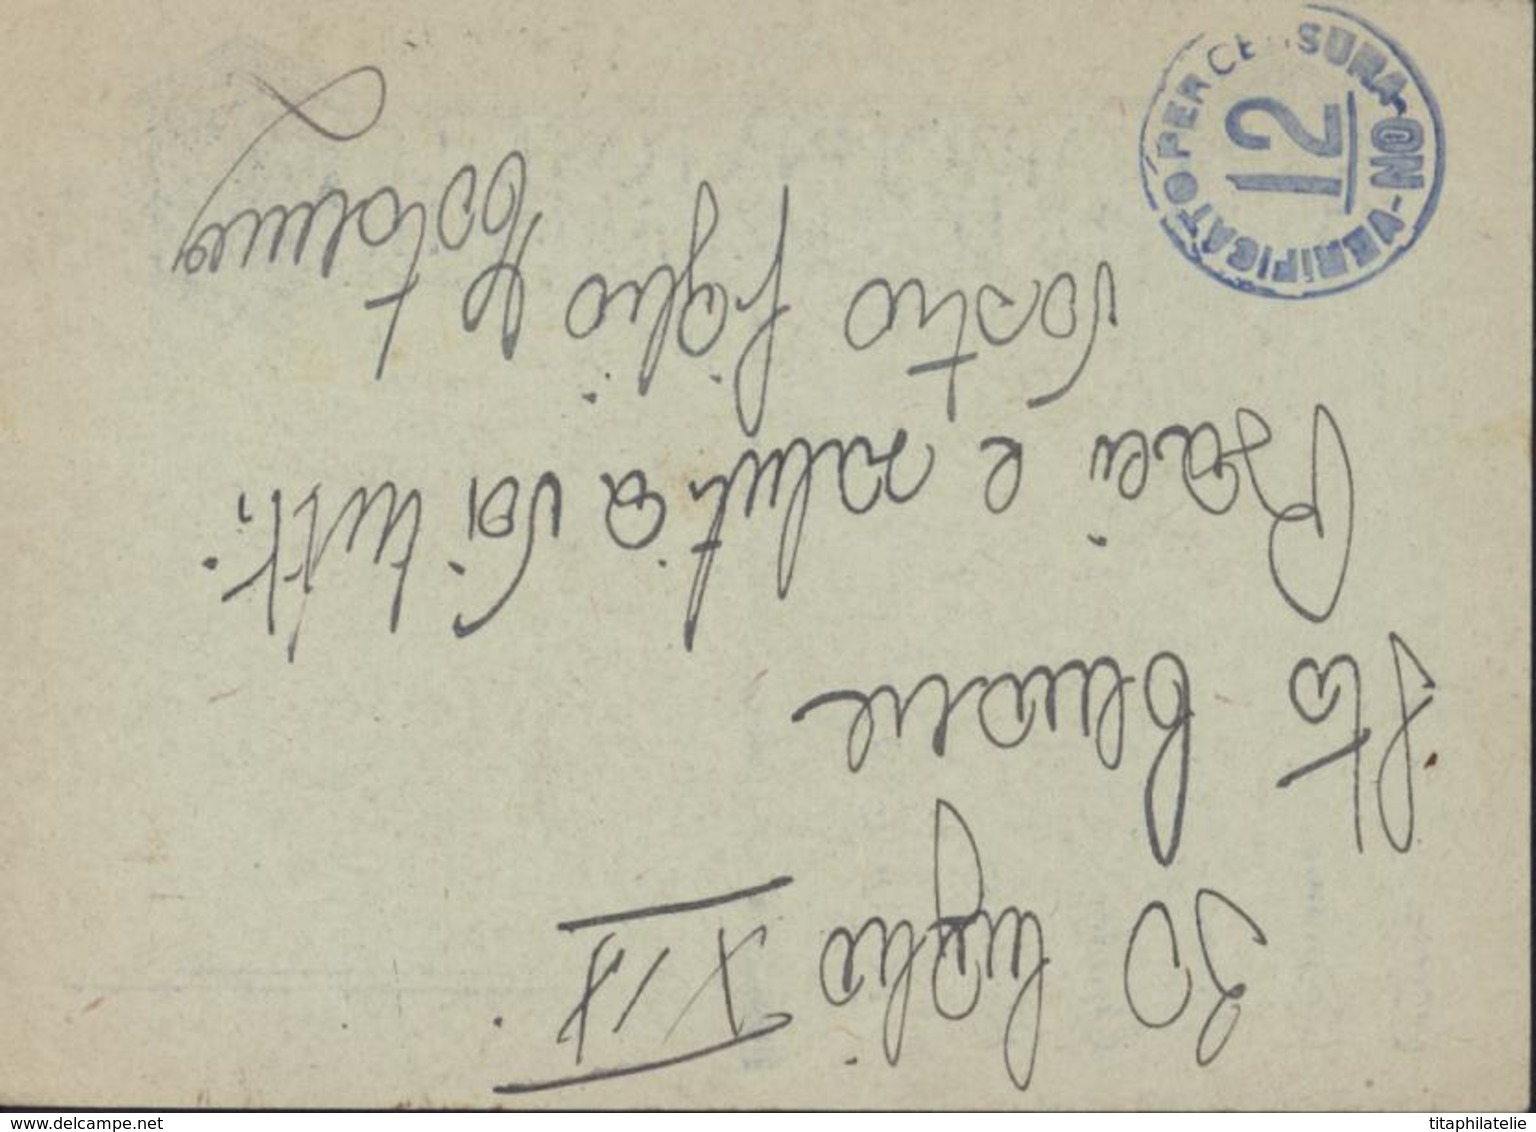 30 luglio XIX
Sto benone
Baci e saluti a voi tutti.
Vostro figlio
VERIFICATO PER CENSURA - NO -
12
www.delcampe.net
titaphilatelie